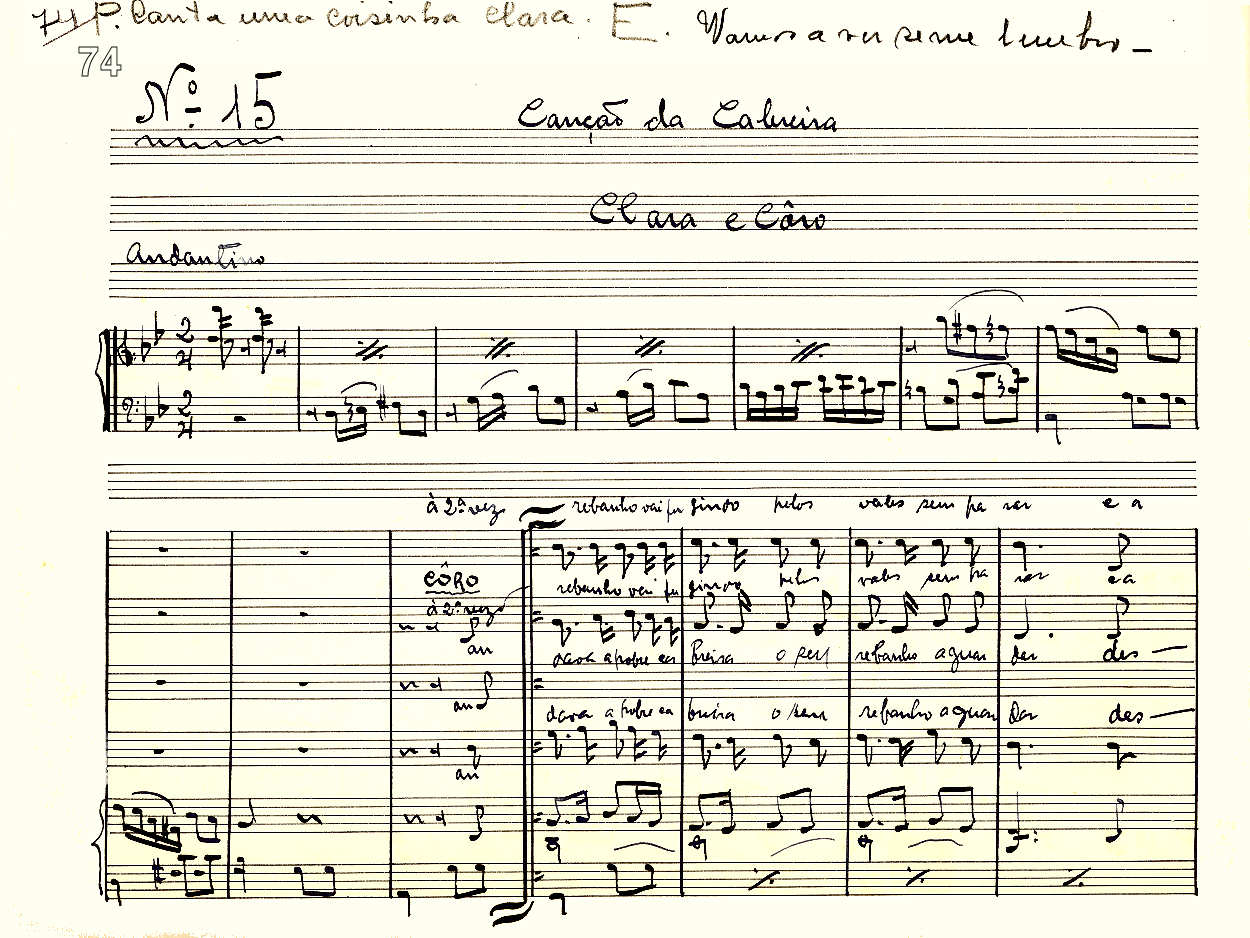 74 P. Canta uma coisinha Clara. E. Vamos a ver se me lembro —
74
Nº 15
Canção da Cabreira
Clara e Côro
Andantino
à 2ª vez rebanho vai fu gindo pelos vales sem pa rar e a
CÔRO
à 2ª vez
rebanho vai fu gindo pelos vales sem pa rar e a
an
dava a pobre ca breira o seu rebanho a guar dar des —
an
dava a pobre ca breira o seu rebanho a guar dar des —
an